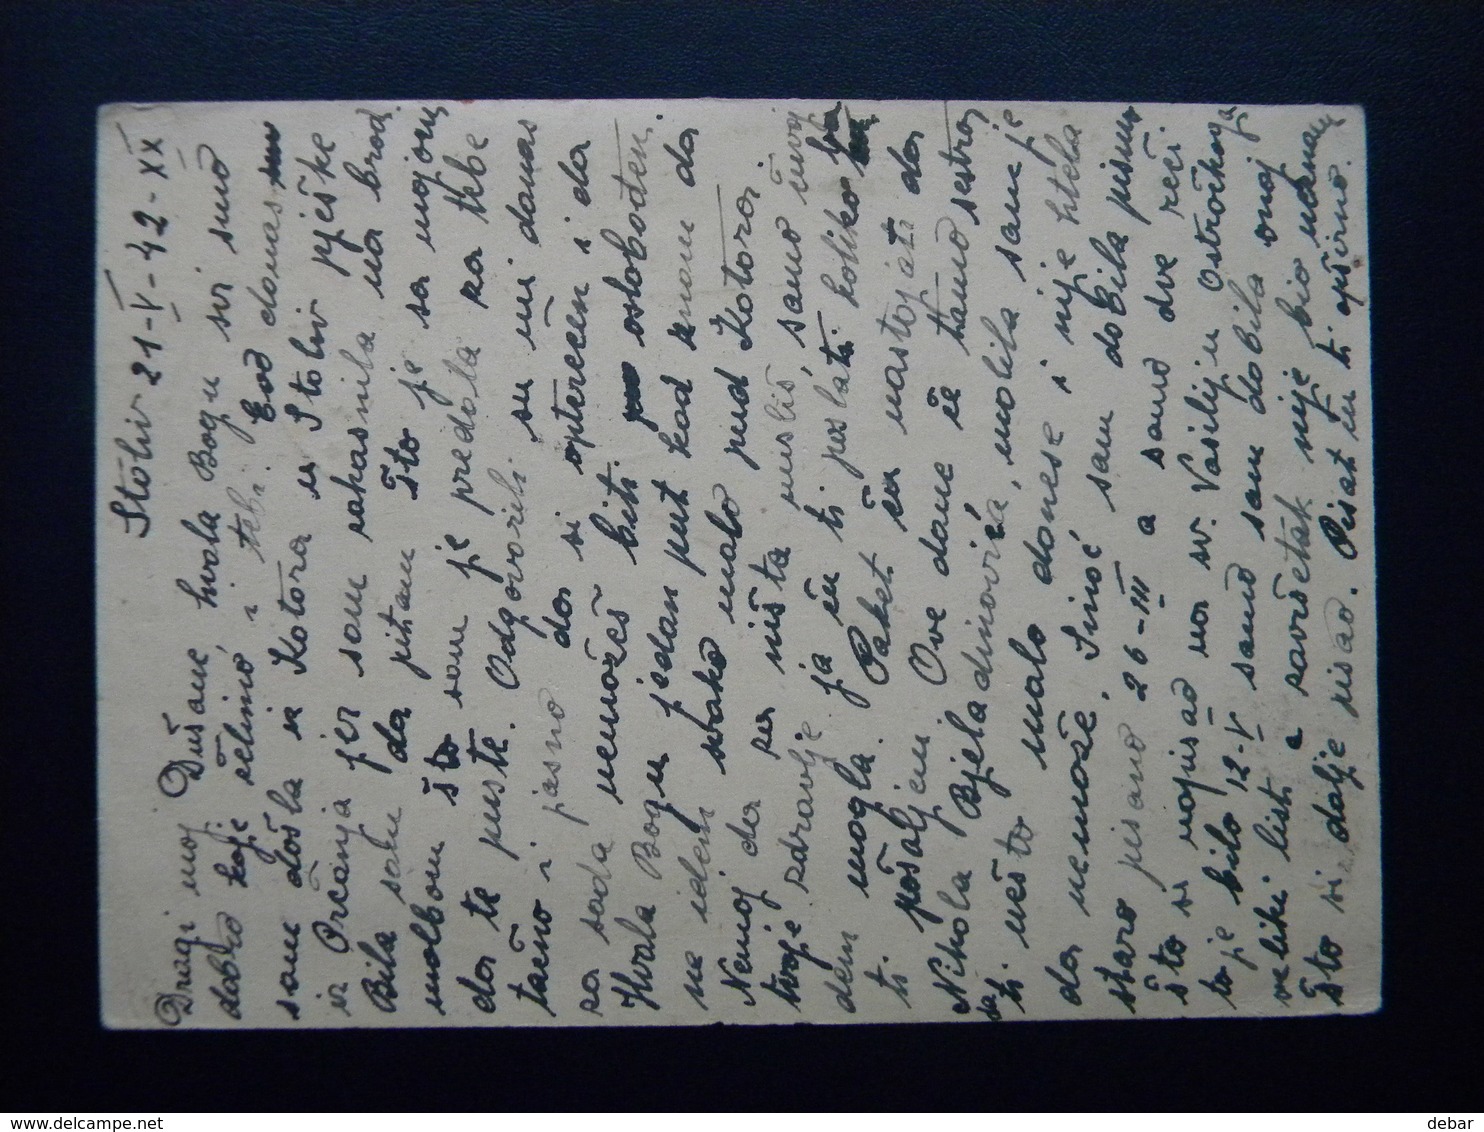 Stoliv 21-V-42-XX
Dragi moj Dušane, hvala Bogu svi smo
dobro koje želimo i tebi. Evo danas
sam došla iz Kotora u Stoliv pješke
iz Orcanja jer sam zakasnila na brod.
Bila sam da pitam što je sa mojom
molbom što sam je predola za tebe
da te puste. Odgovorili su mi danas
tačno i jasno da si opterećen i da
za sada nemožeš biti osloboden.
Hvala Bogu jedan put kad znam da
ne idem svako malo put Kotora.
Nemoj da za ništa misliš, samo čuvaj
tvoje zdravlje ja ću ti poslati koliko
dem mogla. Paket ću nastojati da
ti pošaljem. Ove dane je tamo sestra
Nikola Bjeladinovića, molila sam je
da ti nešto malo donese i nije htela
da nemože. Sinoć sam dobila pismo
staro pisano 26-III a samo dve reči
što si napisao na sv. Vasiliju Ostroškoga
to je bilo 12-V samo sam dobila onaj
veliki list a savršetak nije bio neznam
što si dalje pisao. Pisat ću ti opširno.
debar